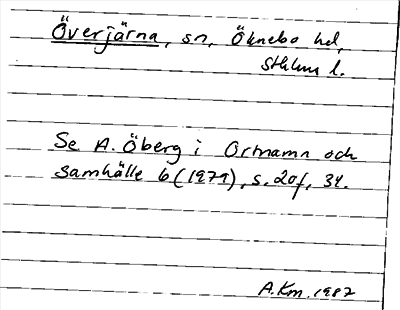 Överjärna, sn, Öknebo hd,
Sthlms l.
Se A. Öberg i Ortnamn och
Samhälle 6 (1979), s. 20f, 34.
A.Km. 1987